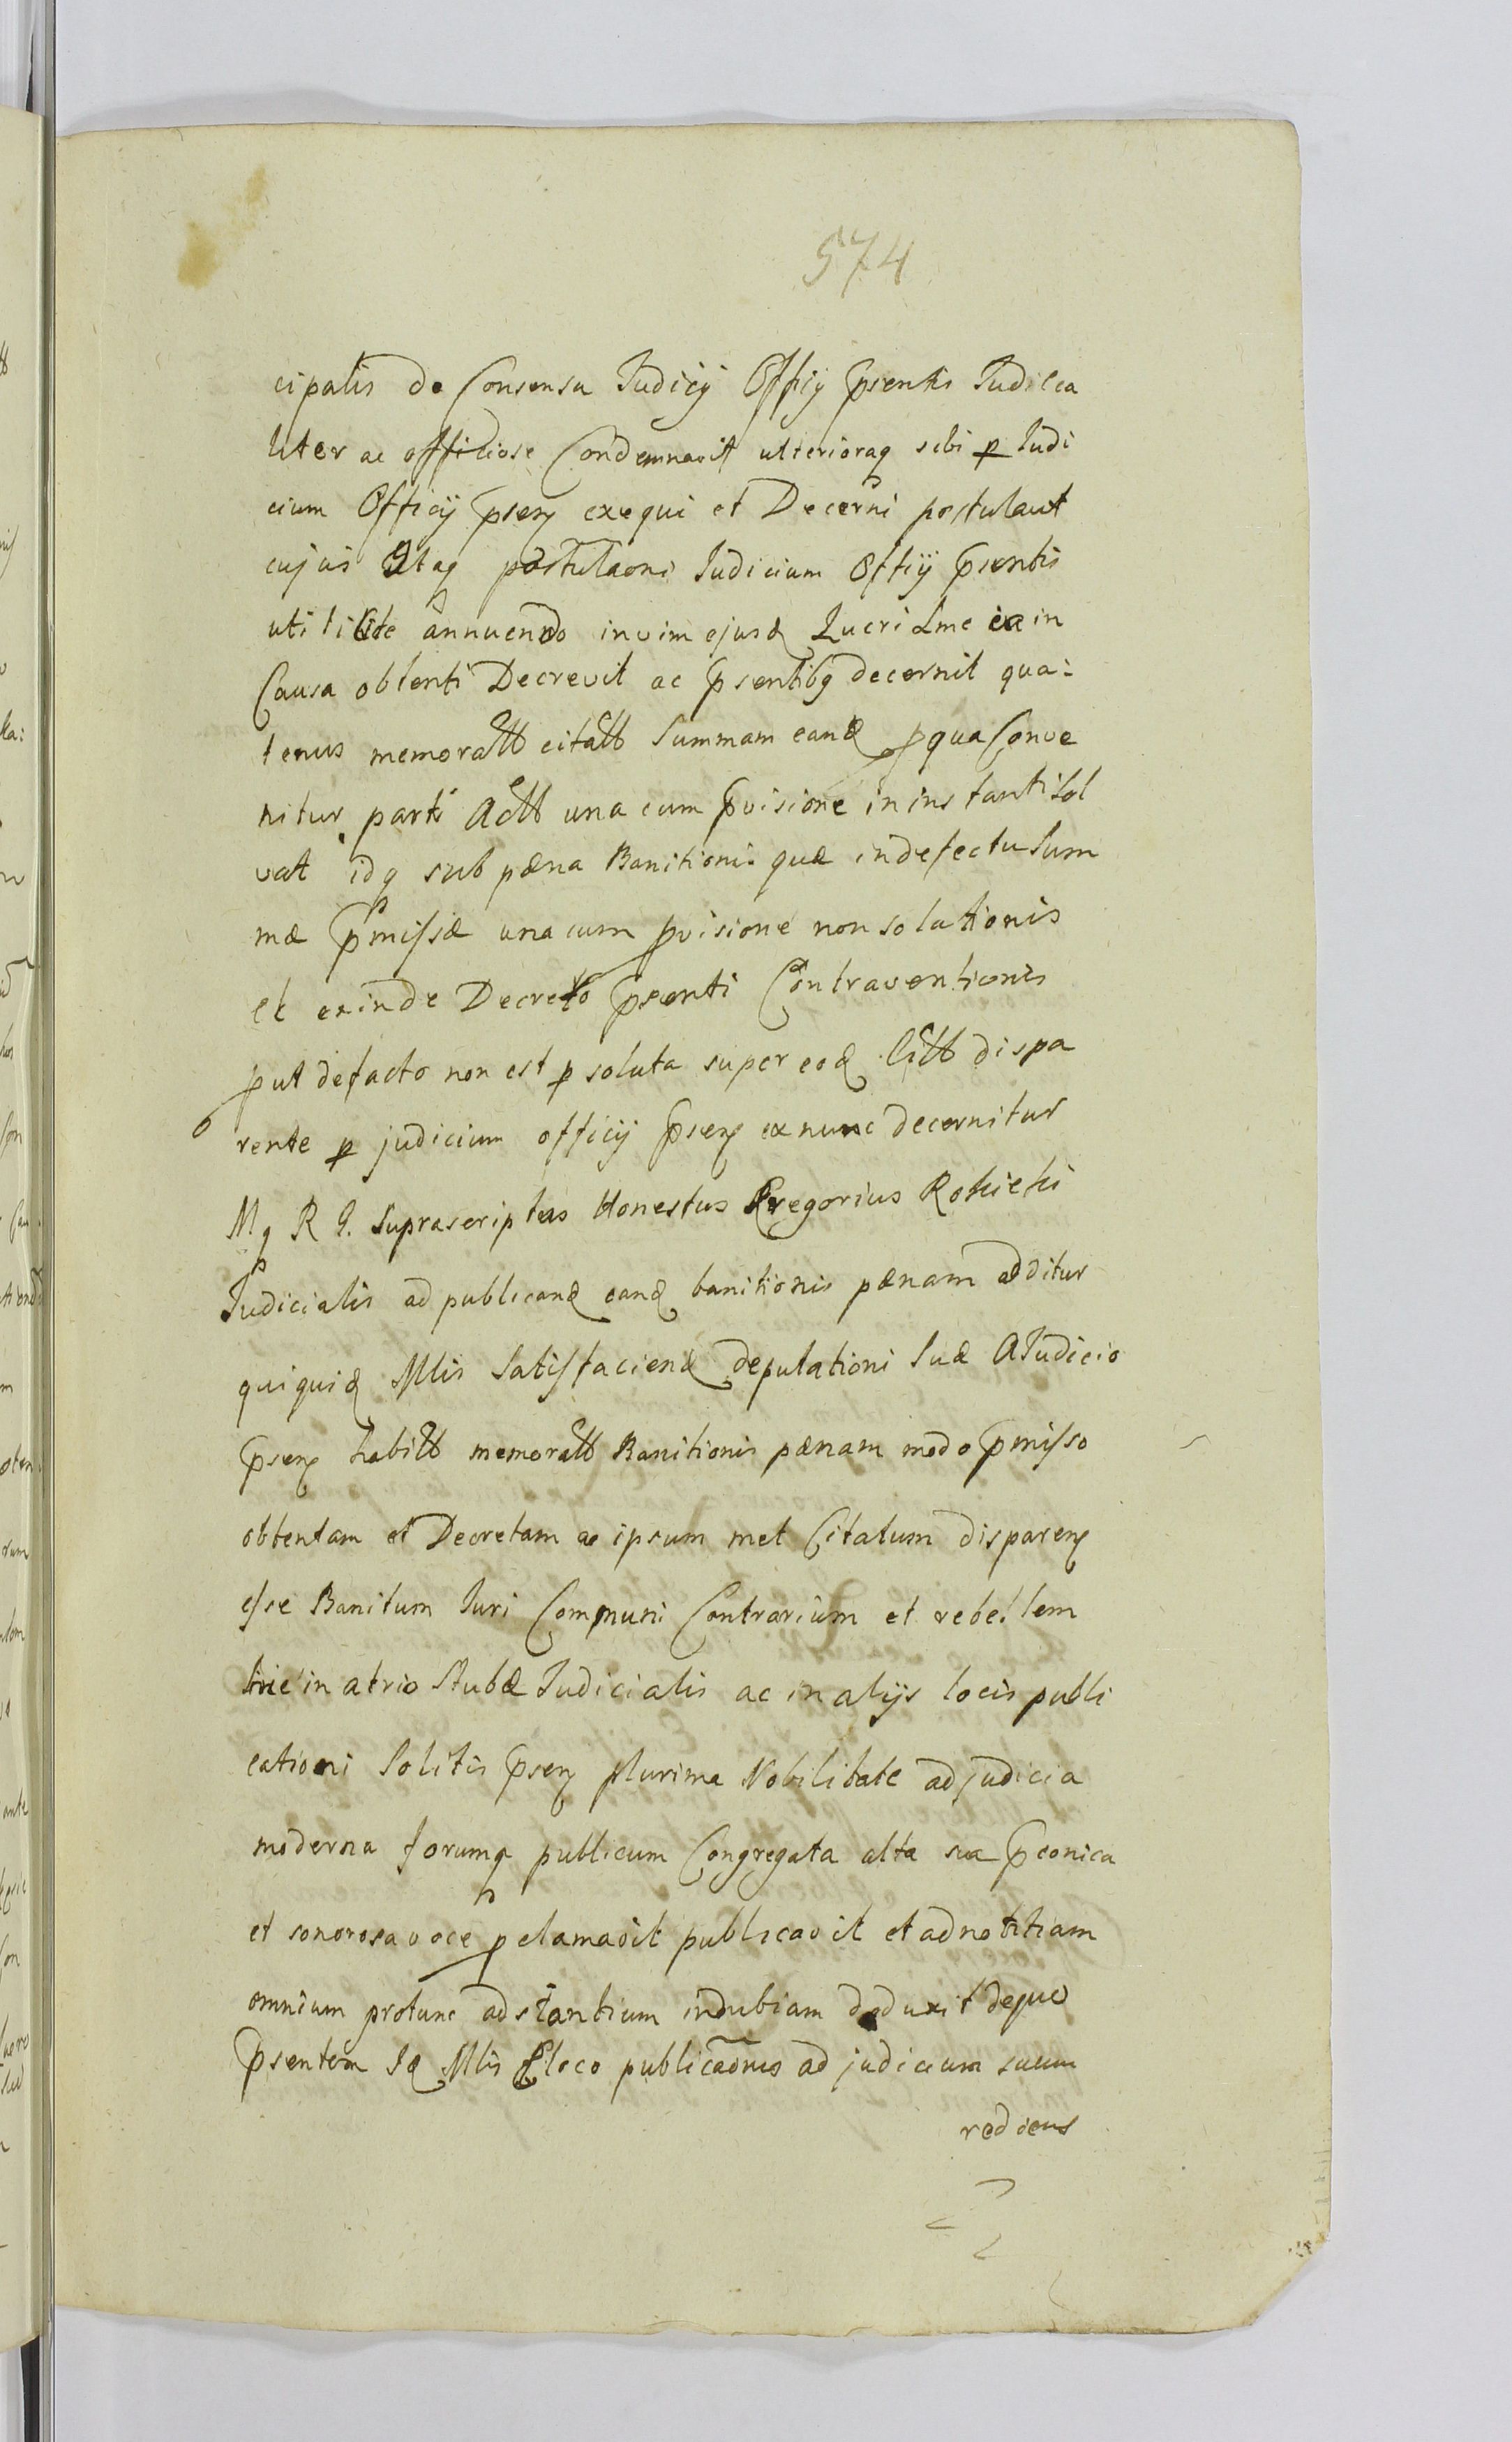 574
cipalis de Consensu Judicÿ Offÿ psentis Judicia
liter ac officiose Condemnavit ulterioraq sibi p Judi
cium Officÿ psen exequi et Decerni postulavit
cujus Itaq postulaoni Judicium Offÿ psentis
uti licite annuendo in vim ejusd Lucri Lme ea in
Causa obtenti Decrevit ac psentibq decernit qua:
tenus memoratt citatt Summam eand p qua Conve
nitur parti Actt una cum pvisione in instanti Sol
vat idq sub pæna Banitionis quæ in defectu Sum
mæ pmissæ una cum pvisione non solutionis
et exinde Decreto psenti Contraventionis
put de facto non est p soluta super eod Citt dispa
rente p judicium officÿ psen ex nunc decernitur
Mq R G. Suprascriptus Honestus Gregorius Rokicki
Judicialis ad publicand eand banitionis pænam additur
qui quid Mlis Satisfaciend deputationi Suæ A Judicio
psen habitt memoratt Banitionis pænam modo pmisso
obtentam et Decretam ac ipsum met Citatum disparen
esse Banitum Juri Communi Contrarium et rebellem
hic in atrio Stubæ Judicialis ac in alÿs locis publi
cationi Solitis psen plurima Nobilitate ad judicia
moderna forumq publicum Congregata alta sua pconica
et sonorosa voce pclamavit publicavit et ad notitiam
omnium protunc adstantium indubiam deduxit deque
psentem Id Mlis E loco publicaonis ad judicium suum
rediens